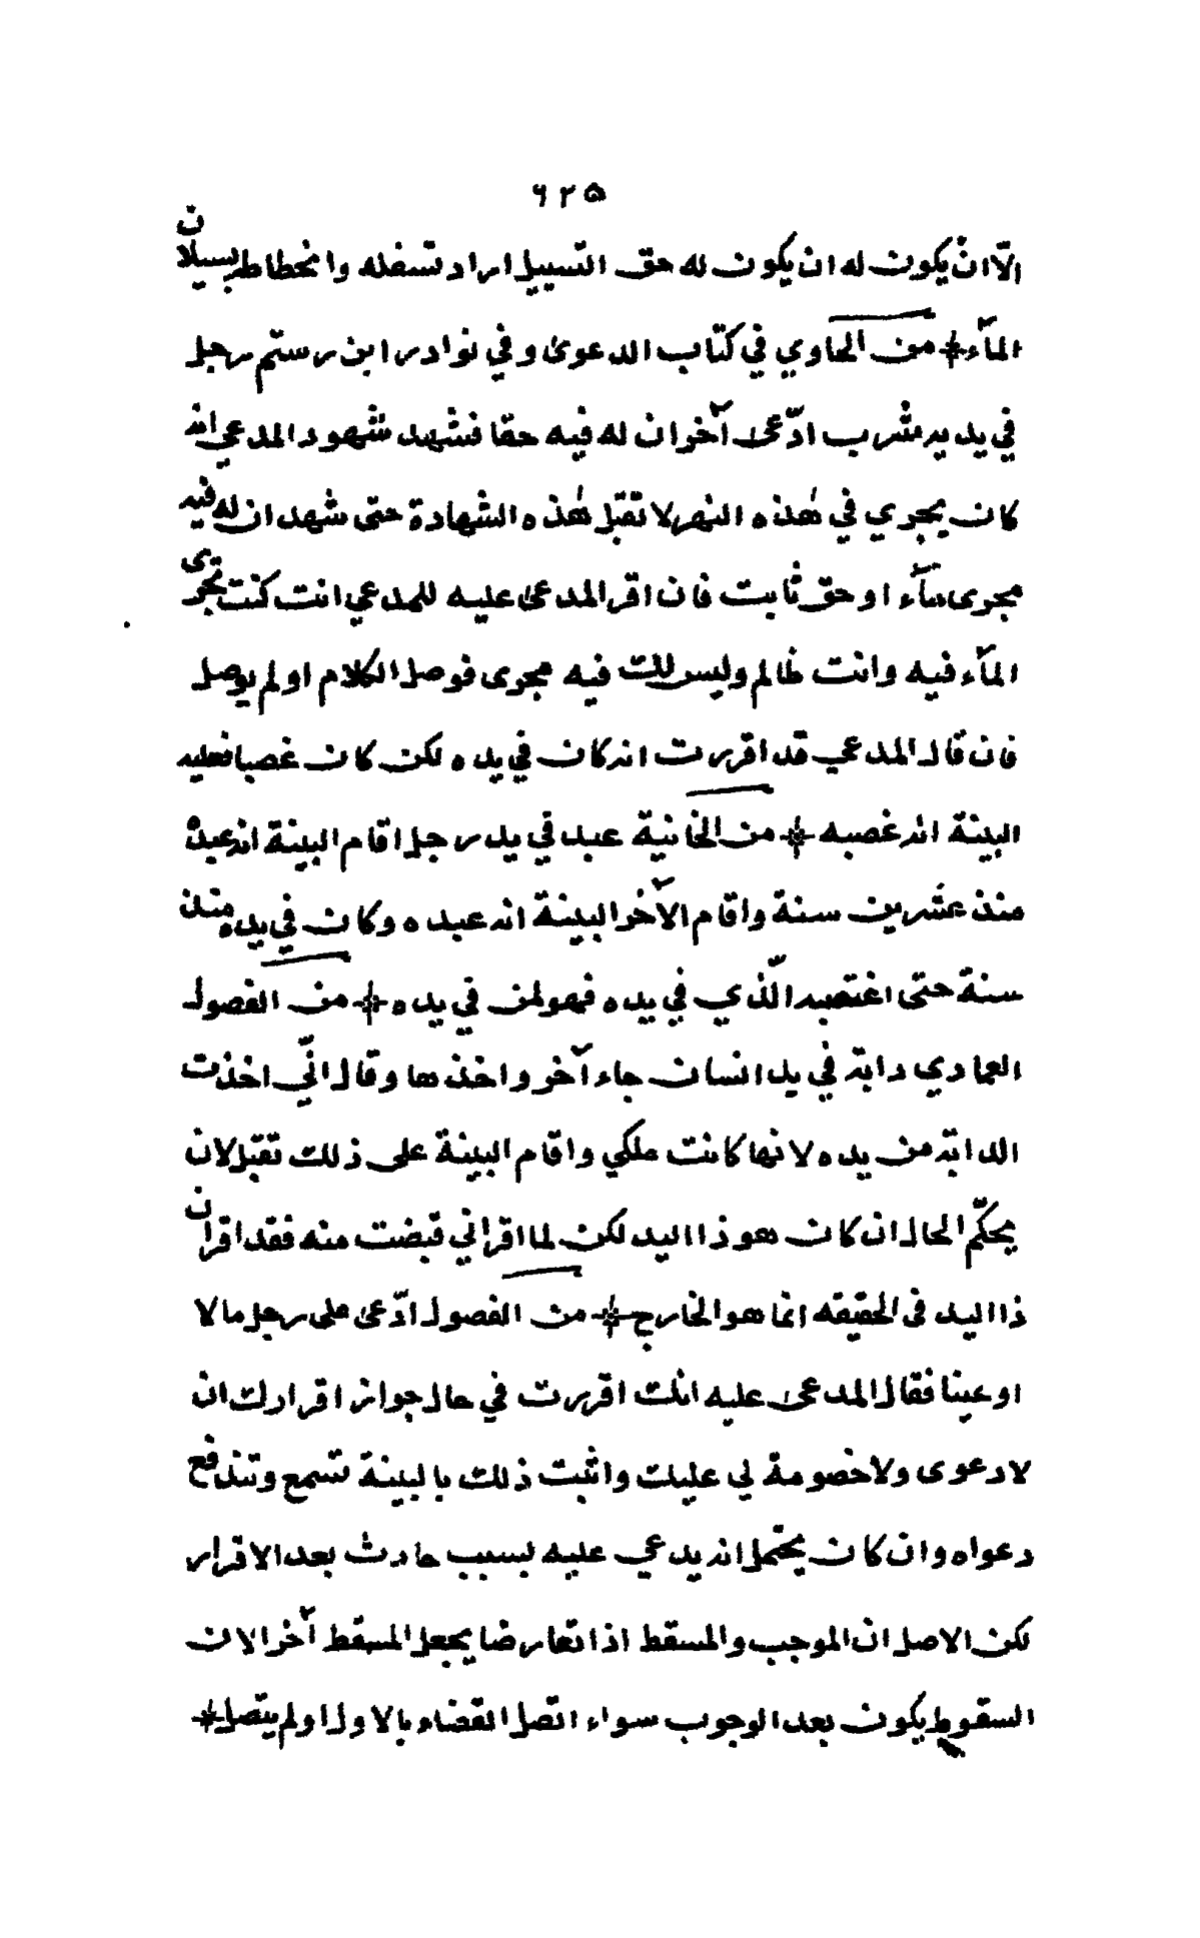 ٦٢٥
الّا ان يكون له ان يكون له حق التسييل اراد تسفله وانحطاطه بسيلان
المآء من الحاوي في كتاب الدعوى وفي نوادر ابن رستم رجل
في يديه شرب ادّعى آخر ان له فيه حقا فشهد شهود المدعي انه
كان يجري في هٰذه النهر لا تقبل هٰذه الشهادة حتى شهد ان له فيه
مجرى مآء او حق ثابت فان اقر المدعى عليه للمدعي انت كنت تجرى
المآء فيه وانت ظالم وليس لك فيه مجرى فوصل الكلام او لم يوصل
فان قال المدعي قد اقررت انه كان في يده لكن كان غصبا فعليه
البينة انه غصبه من الخانية عبد في يد رجل اقام البينة انه عبده
منذ عشرين سنة واقام الآخر البينة انه عبده وكان في يده منذ
سنة حتى اغتصبه الّذي في يده فهو لمن في يده من الفصول
العمادي دابة في يد انسان جاء آخر واخذها وقال انّي اخذت
الدابة من يده لانها كانت ملكي واقام البينة على ذلك تقبل لان
يحكّم الحال ان كان هو ذا اليد لكن لما اقر اني قبضت منه فقد اقر ان
ذا اليد فى الحقيقه انما هو الخارج من الفصول ادّعى على رجل مالا
او عينا فقال المدعى عليه انك اقررت في حال جواز اقرارك ان
لا دعوى ولا خصومة لي عليك واثبت ذلك بالبينة تسمع وتندفع
دعواه وان كان يحتمل انه يدعي عليه بسبب حادث بعد الاقرار
لكن الاصل ان الموجب والمسقط اذا تعارضا يجعل المسقط آخرا لان
السقوط يكون بعد الوجوب سواء اتصل القضاء بالاول او لم يتصل